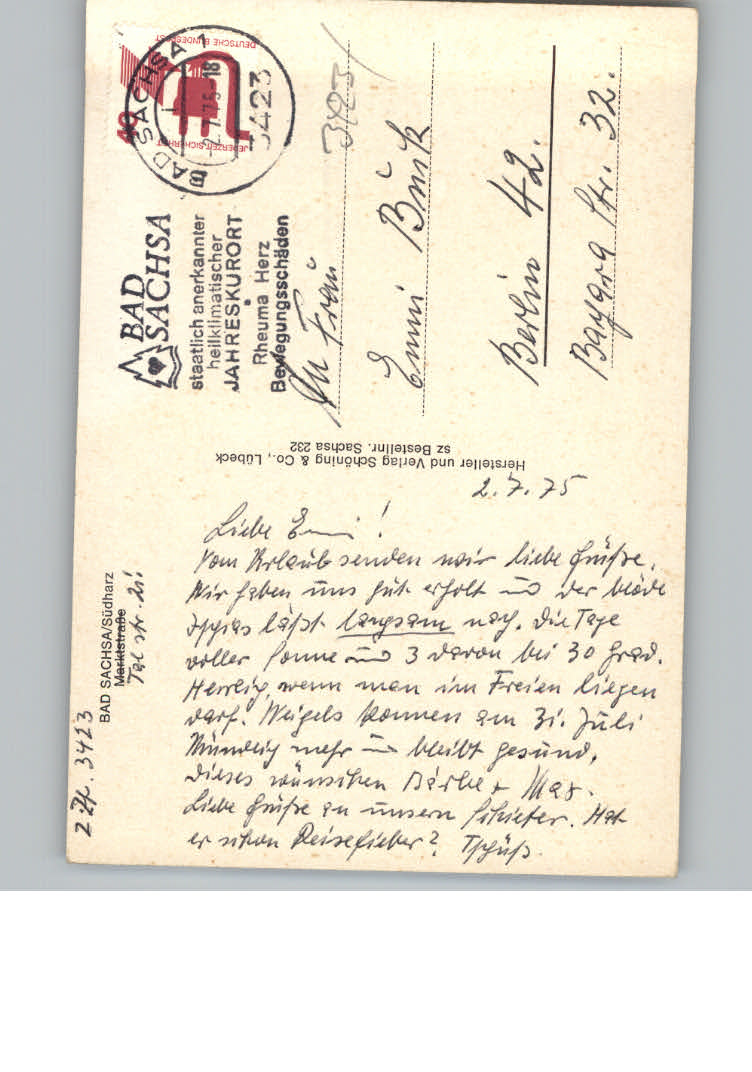 DEUTSCHE BUNDESPOST
JEDERZEIT SICHERHEIT
40
BAD SACHSA 1
-2.7.75-18
3423
BAD
SACHSA
staatlich anerkannter
heilklimatischer
JAHRESKURORT
Rheuma Herz
Bewegungsschäden
3423
An Frau
Emmi
Berlin 42.
Str. 32.
Hersteller und Verlag Schöning & Co., Lübeck
sz Bestellnr. Sachsa 232
BAD SACHSA/Südharz
Marktstraße
Tal str. 21
3423
2.7.75
Liebe Emmi!
Vom Urlaub senden wir liebe Grüße.
Wir haben uns gut erholt und der blöde
Ischias läßt langsam nach. Die Tage
voller Sonne und 3 davon bei 30 Grad.
Herrlich, wenn man im Freien liegen
darf. Weigels kommen am 31. Juli
Mündlich mehr und bleibt gesund,
dieses wünschen Bärbe + Max.
Liebe Grüße an unsern Schieter. Hat
er schon Reisefieber? Tschüß.